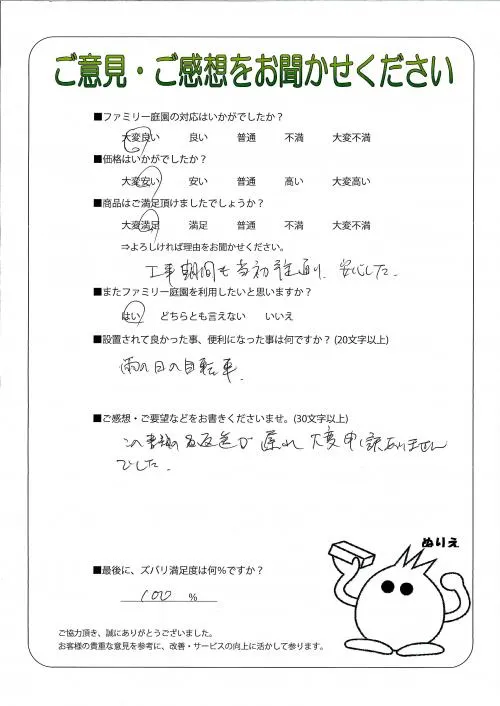 ご意見・ご感想をお聞かせください
■ファミリー庭園の対応はいかがでしたか？
大変良い 良い 普通 不満 大変不満
■価格はいかがでしたか？
大変安い 安い 普通 高い 大変高い
■商品はご満足頂けましたでしょうか？
大変満足 満足 普通 不満 大変不満
⇒よろしければ理由をお聞かせください。
工事期間も当初 通り、安心した.
■またファミリー庭園を利用したいと思いますか？
はい どちらとも言えない いいえ
■設置されて良かった事、便利になった事は何ですか？(20文字以上)
雨の日の自転車.
■ご感想・ご要望などをお書きくださいませ。(30文字以上)
この 返送が遅れ大変申し訳ありません
でした.
ぬりえ
■最後に、ズバリ満足度は何％ですか？
100 %
ご協力頂き、誠にありがとうございました。
お客様の貴重な意見を参考に、改善・サービスの向上に活かして参ります。